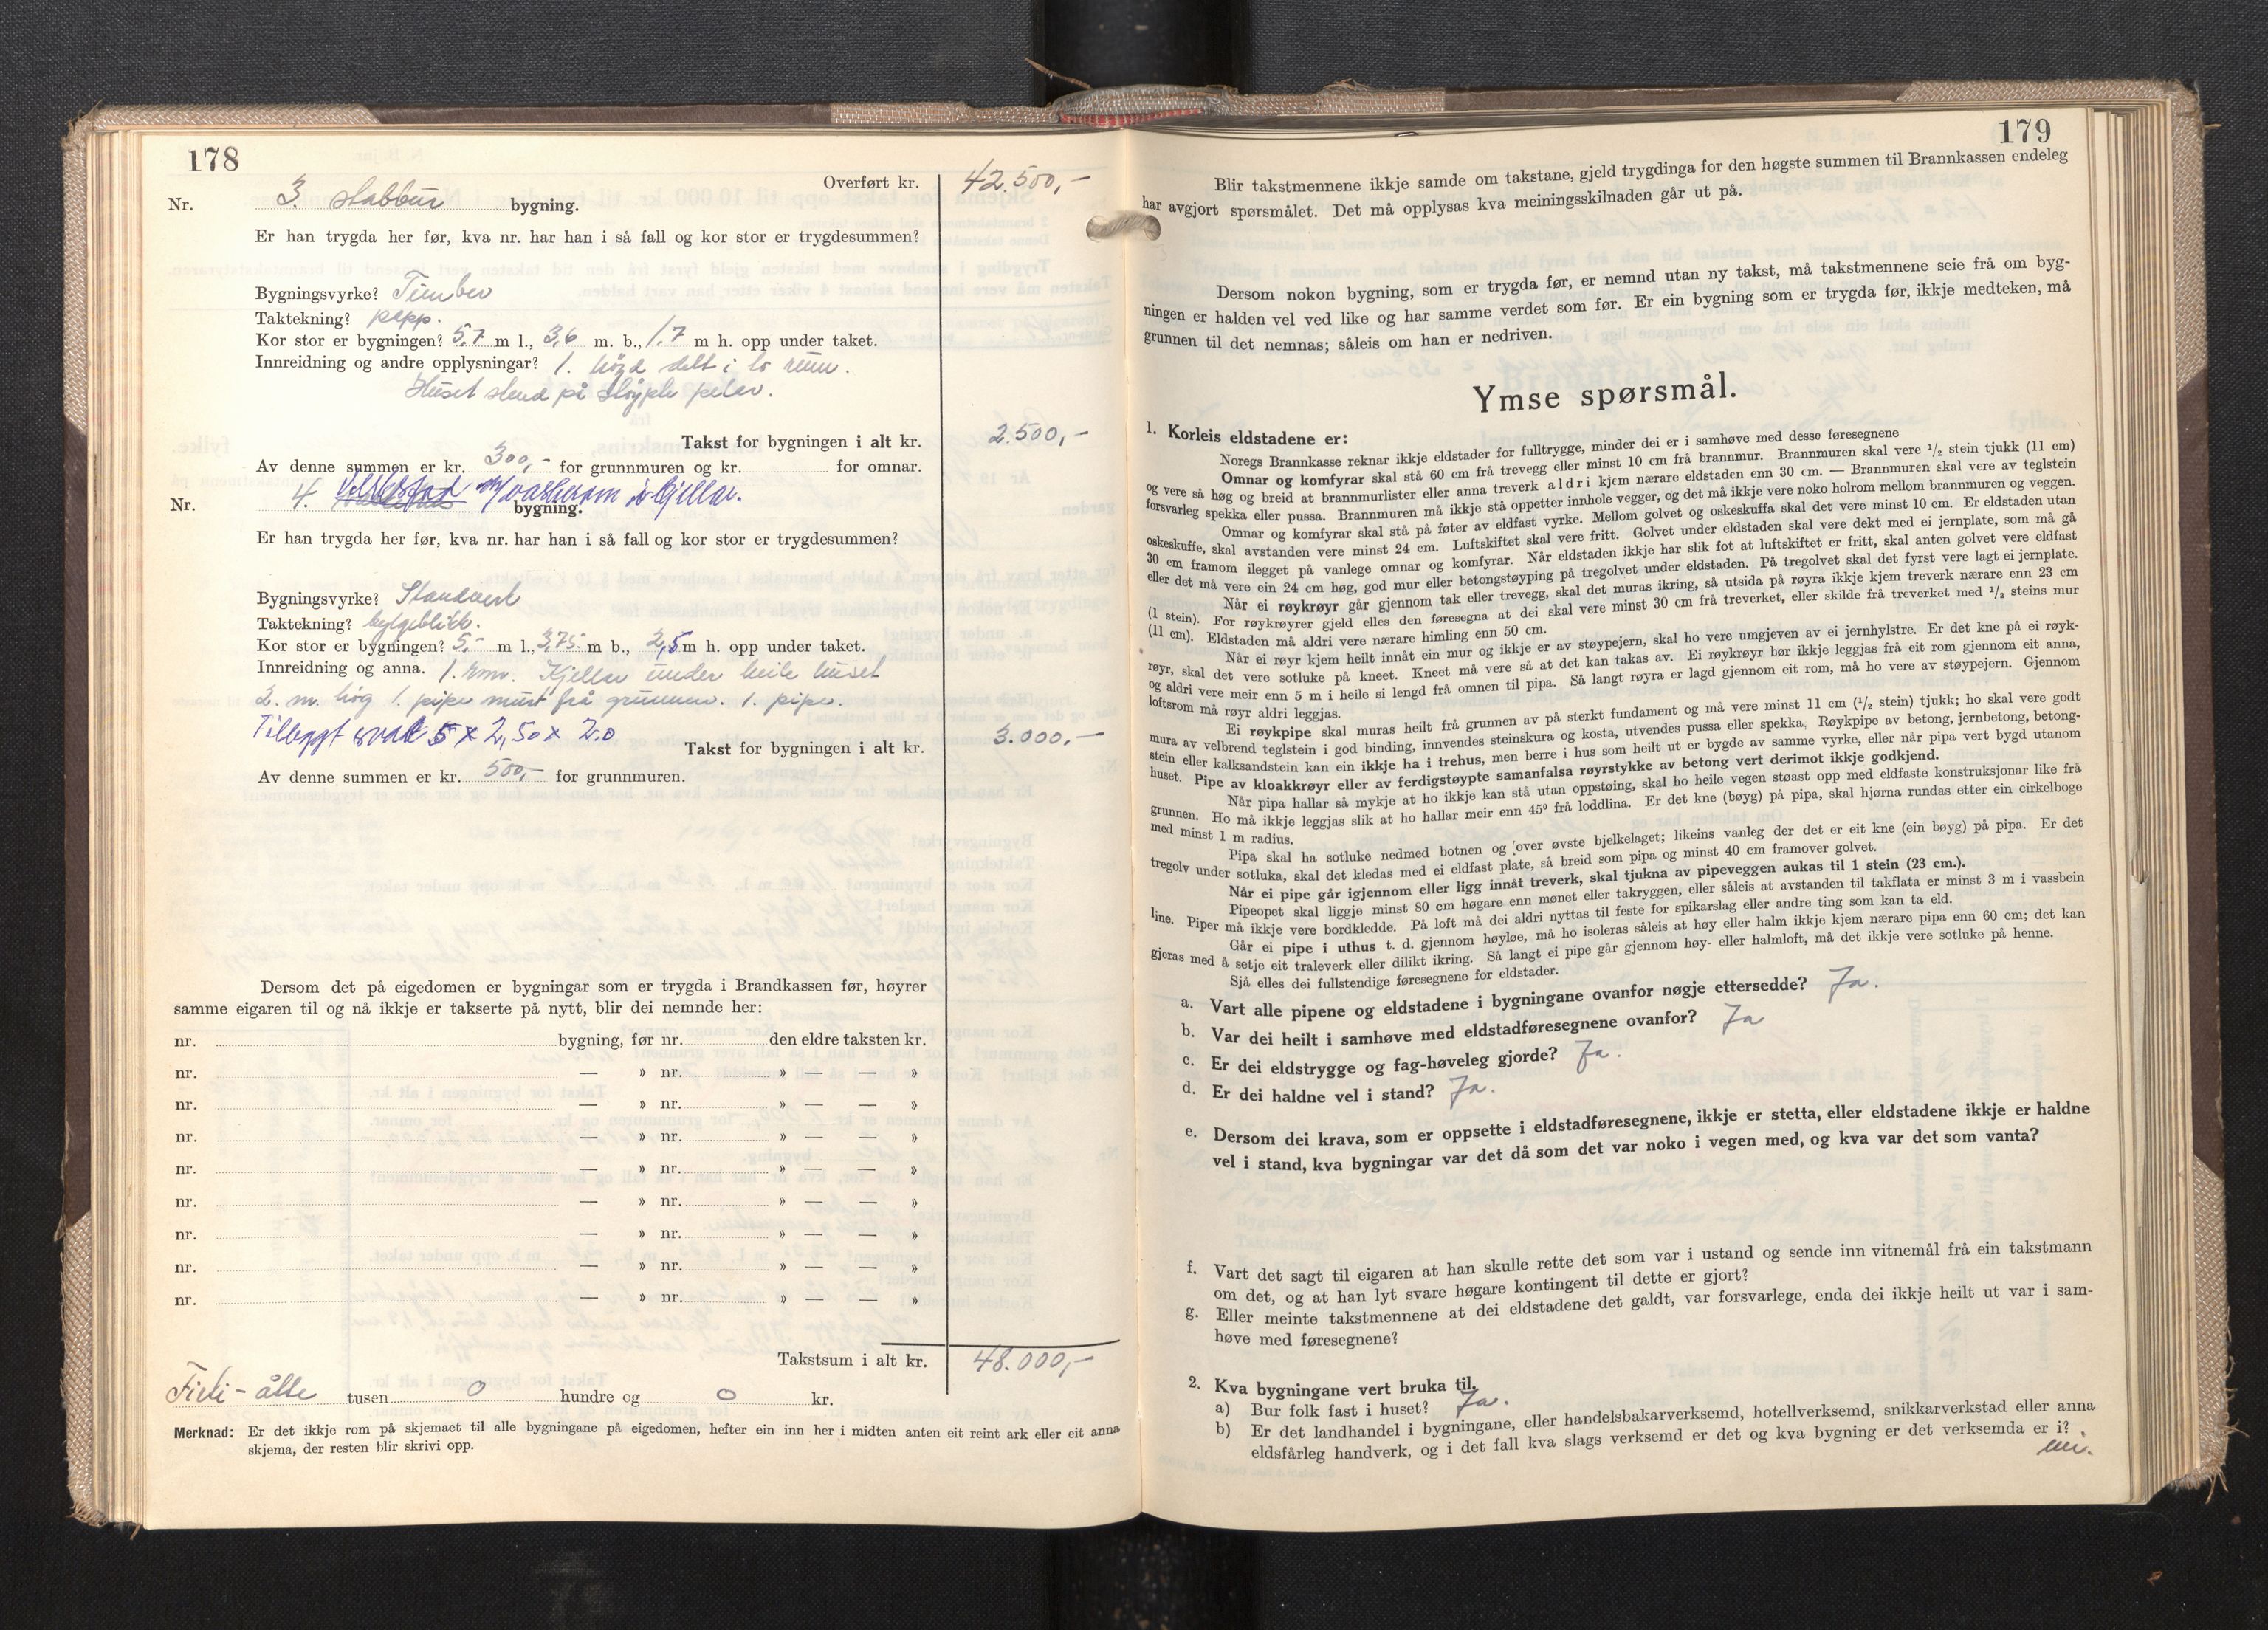 178
Overført kr. 42.500,-
Nr. 3. Stabbur bygning.
Er han trygda her før, kva nr. har han i så fall og kor stor er trygdesummen?
Bygningsvyrke? Timber
Taktekning? papp.
Kor stor er bygningen? 5,7 m l., 3,6 m. b., 1,7 m h. opp under taket.
Innreidning og andre opplysningar? 1. høgd delt i to rum.
Huset stend på støypte pelar.
Takst for bygningen i alt kr. 2.500,-
Av denne summen er kr. 300,- for grunnmuren og kr. for omnar.
Nr. 4. m/vaskerom i kjellar. bygning.
Er han trygda her før, kva nr. har han i så fall og kor stor er trygdesummen?
Bygningsvyrke? Standverk
Taktekning? bylgeblikk.
Kor stor er bygningen? 5,- m l., 3,75 m b., 2,5 m h. opp under taket.
Innreidning og anna. 1. rom. Kjellar under heile huset
2. m. høg 1. pipe murt frå grunnen. 1. pipe.
Tilbygt sval 5 x 2,50 x 2.0
Takst for bygningen i alt kr. 3.000,-
Av denne summen er kr. 500,- for grunnmuren.
Dersom det på eigedomen er bygningar som er trygda i Brandkassen før, høyrer
samme eigaren til og nå ikkje er takserte på nytt, blir dei nemnde her:
nr. bygning, før nr. den eldre taksten kr.
nr. — » nr. » — — »
nr. — » nr. » — — »
nr. — » nr. » — — »
nr. — » nr. » — — »
nr. — » nr. » — — »
nr. — » nr. » — — »
nr. — » nr. » — — »
nr. — » nr. » — — »
Takstsum i alt kr. 48.000,-
Firti-åtte tusen 0 hundre og 0 kr.
Merknad: Er det ikkje rom på skjemaet til alle bygningane på eigedomen, hefter ein inn her i midten anten eit reint ark eller eit anna
skjema, der resten blir skrivi opp.
179
Blir takstmennene ikkje samde om takstane, gjeld trygdinga for den høgste summen til Brannkassen endeleg
har avgjort spørsmålet. Det må opplysas kva meiningsskilnaden går ut på.
Dersom nokon bygning, som er trygda før, er nemnd utan ny takst, må takstmennene seie frå om byg-
ningen er halden vel ved like og har samme verdet som før. Er ein bygning som er trygda før, ikkje medteken, må
grunnen til det nemnas; såleis om han er nedriven.
Ymse spørsmål.
1. Korleis eldstadene er:
Noregs Brannkasse reknar ikkje eldstader for fulltrygge, minder dei er i samhøve med desse føresegnene
Omnar og komfyrar skal stå 60 cm frå trevegg eller minst 10 cm frå brannmur. Brannmuren skal vere 1/2 stein tjukk (11 cm)
og vere så høg og breid at brannmurlister eller anna treverk aldri kjem nærare eldstaden enn 30 cm. — Brannmuren skal vere av teglstein
forsvarleg spekka eller pussa. Brannmuren må ikkje stå oppetter innhole vegger, og det må ikkje vere noko holrom mellom brannmuren og veggen.
Omnar og komfyrar skal stå på føter av eldfast vyrke. Mellom golvet og oskeskuffa skal det vere minst 10 cm. Er eldstaden utan
oskeskuffe, skal avstanden vere minst 24 cm. Luftskiftet skal vere fritt. Golvet under eldstaden skal vere dekt med ei jernplate, som må gå
30 cm framom ilegget på vanlege omnar og komfyrar. Når eldstaden ikkje har slik fot at luftskiftet er fritt, skal anten golvet vere eldfast
eller det må vere ein 24 cm høg, god mur eller betongstøyping på tregolvet under eldstaden. På tregolvet skal det fyrst vere lagt ei jernplate.
Når ei røykrøyr går gjennom tak eller trevegg, skal det muras ikring, så utsida på røyra ikkje kjem treverk nærare enn 23 cm
(1 stein). For røykrøyrer gjeld elles den føresegna at dei skal vere minst 30 cm frå treverket, eller skilde frå treverket med 1/2 steins mur
(11 cm). Eldstaden må aldri vere nærare himling enn 50 cm.
Når ei røyr kjem heilt innåt ein mur og ikkje er av støypejern, skal ho vere umgjeven av ei jernhylstre. Er det kne på ei røyk-
røyr, skal det vere sotluke på kneet. Kneet må vere så at det kan takas av. Ei røykrøyr bør ikkje leggjas frå eit rom gjennom eit anna,
og aldri vere meir enn 5 m i heile si lengd frå omnen til pipa. Så langt røyra er lagd gjennom eit rom, må ho vere av støypejern. Gjennom
loftsrom må røyr aldri leggjas.
Ei røykpipe skal muras heilt frå grunnen av på sterkt fundament og må vere minst 11 cm (1/2 stein) tjukk; ho skal vere godt
mura av velbrend teglstein i god binding, innvendes steinskura og kosta, utvendes pussa eller spekka. Røykpipe av betong, jernbetong, betong-
stein eller kalksandstein kan ein ikkje ha i trehus, men berre i hus som heilt ut er bygde av samme vyrke, eller når pipa vert bygd utanom
huset. Pipe av kloakkrøyr eller av ferdigstøypte samanfalsa røyrstykke av betong vert derimot ikkje godkjend.
Når pipa hallar så mykje at ho ikkje kan stå utan oppstøing, skal ho heile vegen støast opp med eldfaste konstruksjonar like frå
grunnen. Ho må ikkje leggjas slik at ho hallar meir enn 45° frå loddlina. Er det kne (bøyg) på pipa, skal hjørna rundas etter ein cirkelboge
med minst 1 m radius.
Pipa skal ha sotluke nedmed botnen og over øvste bjelkelaget; likeins vanleg der det er eit kne (ein bøyg) på pipa. Er det
tregolv under sotluka, skal det kledas med ei eldfast plate, så breid som pipa og minst 40 cm framover golvet.
Når ei pipe går igjennom eller ligg innåt treverk, skal tjukna av pipeveggen aukas til 1 stein (23 cm.).
Pipeopet skal liggje minst 80 cm høgare enn mønet eller takryggen, eller såleis at avstanden til takflata er minst 3 m i vassbein
line. Piper må ikkje vere bordkledde. På loft må dei aldri nyttas til feste for spikarslag eller andre ting som kan ta eld.
Går ei pipe i uthus t. d. gjennom høyløe, må ho isoleras såleis at høy eller halm ikkje kjem nærare pipa enn 60 cm; det kan
gjeras med å setje eit traleverk eller dilikt ikring. Så langt ei pipe går gjennom høy- eller halmloft, må det ikkje vere sotluke på henne.
Sjå elles dei fullstendige føresegnene for eldstader.
a. Vart alle pipene og eldstadene i bygningane ovanfor nøgje ettersedde? Ja.
b. Var dei heilt i samhøve med eldstadføresegnene ovanfor? Ja
c. Er dei eldstrygge og fag-høveleg gjorde? Ja.
d. Er dei haldne vel i stand? Ja.
e. Dersom dei krava, som er oppsette i eldstadføresegnene, ikkje er stetta, eller eldstadene ikkje er haldne
vel i stand, kva bygningar var det då som det var noko i vegen med, og kva var det som vanta?
f. Vart det sagt til eigaren at han skulle rette det som var i ustand og sende inn vitnemål frå ein takstmann
om det, og at han lyt svare høgare kontingent til dette er gjort?
g. Eller meinte takstmennene at dei eldstadene det galdt, var forsvarlege, enda dei ikkje heilt ut var i sam-
høve med føresegnene?
2. Kva bygningane vert bruka til.
a) Bur folk fast i huset? Ja.
b) Er det landhandel i bygningane, eller handelsbakarverksemd, hotellverksemd, snikkarverkstad eller anna
eldsfårleg handverk, og i det fall kva slags verksemd er det og kva bygning er det verksemda er i?
nei.